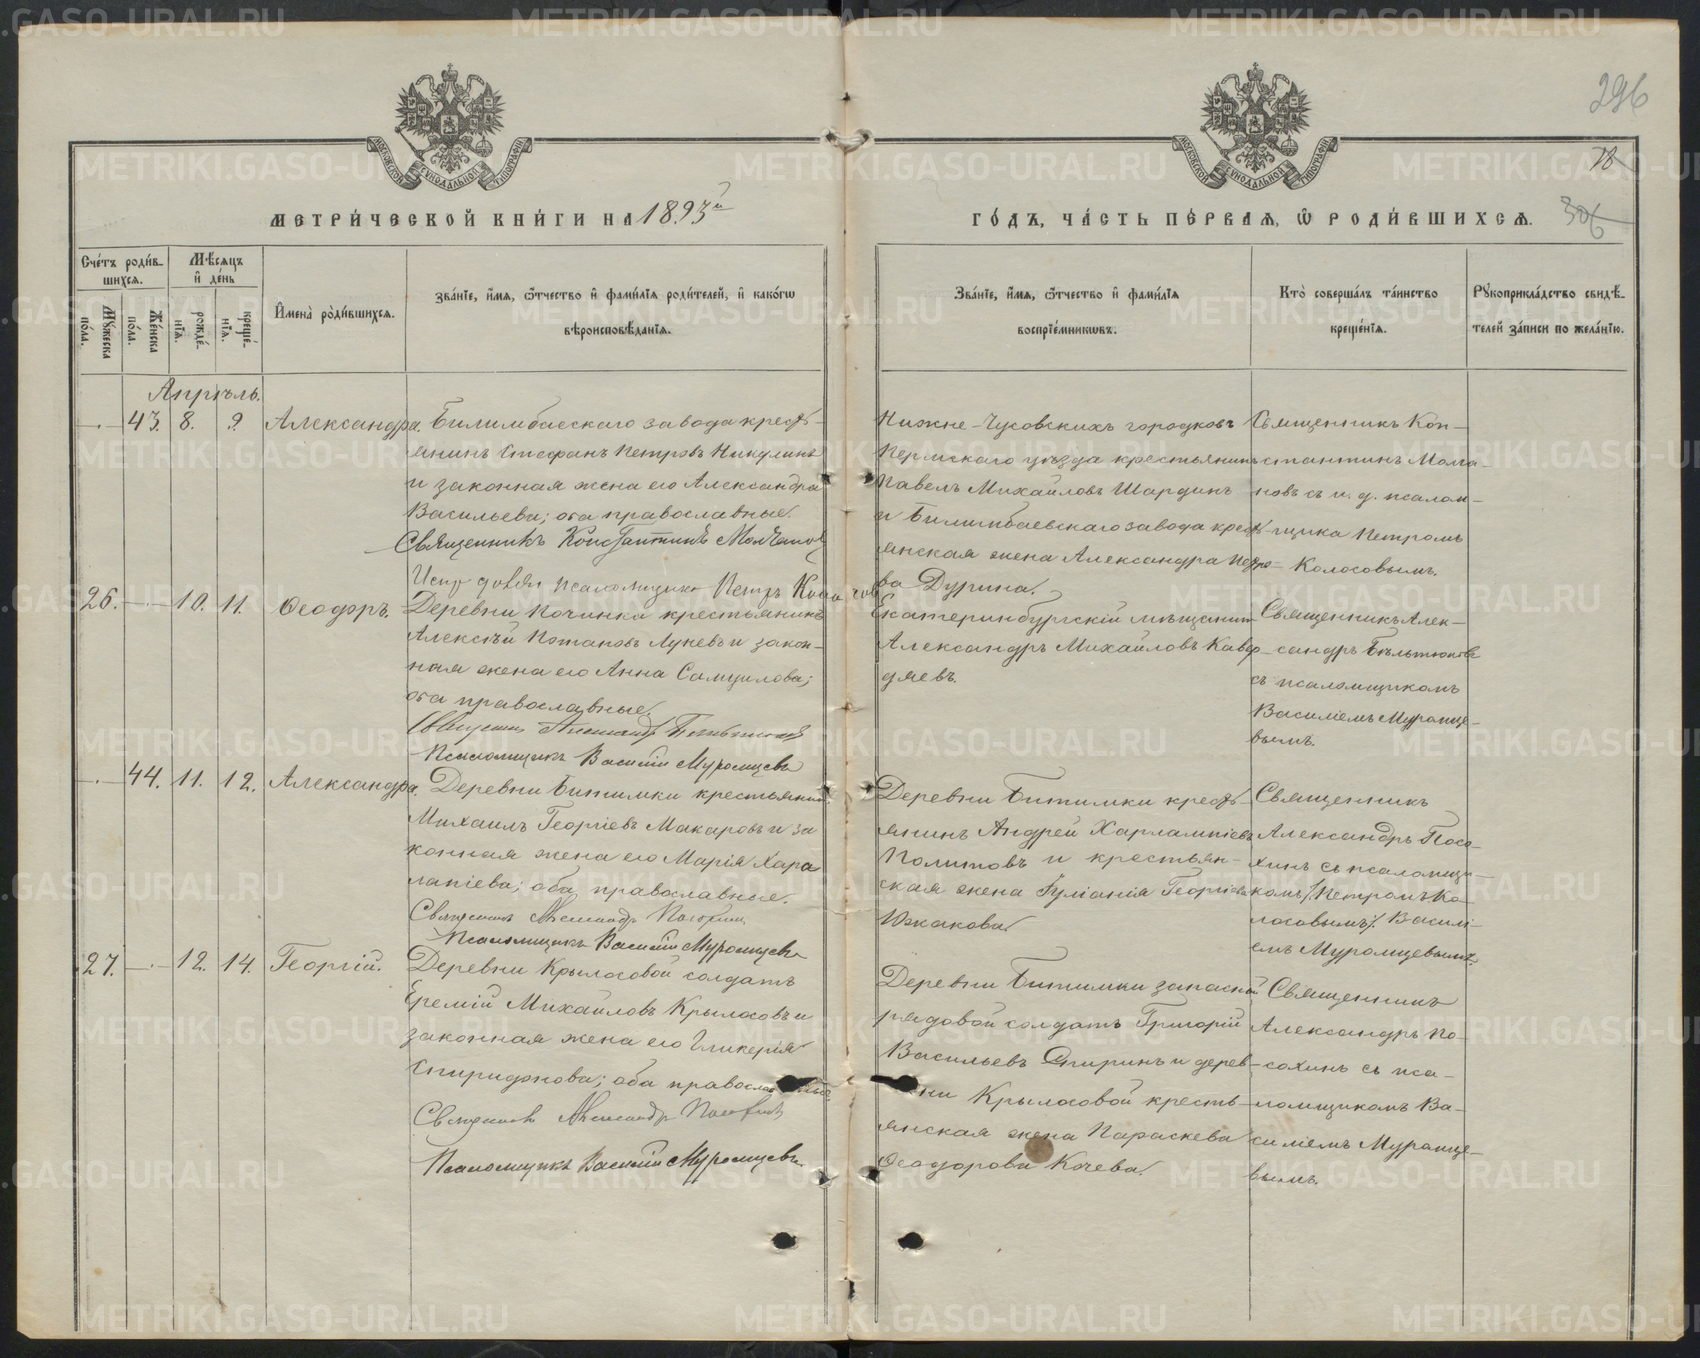 296
18
306
МОСКОВСКОЙ СѴНОДАЛЬНОЙ ТИПОГРАФІИ
МОСКОВСКОЙ СѴНОДАЛЬНОЙ ТИПОГРАФІИ
МЕТРИ́ЧЕСКОЙ КНИ́ГИ НА 1893й
ГО́ДЪ, ЧА́СТЬ ПЕ́РВАЯ, Ѡ РОДИ́ВШИХСЯ.
Сче́тъ роди́в-
шихся.
Мѣ́сяцъ
и҆ де́нь
Мꙋ́жеска
по́ла.
Же́нска
по́ла.
рожде́-
нїя.
креще́-
нїя.
И҆мена̀ роди́вшихся.
Зва́нїе, и҆́мя, ѻ҆́тчество и҆ фами́лїя роди́телей, и҆ како́гѡ
вѣроисповѣ́данїя.
Зва́нїе, и҆́мя, ѻ҆́тчество и҆ фами́лїя
воспрїе́мникѡвъ.
Кто̀ соверша́лъ та́инство
креще́нїя.
Рꙋкоприкла́дство свидѣ́-
телей за́писи по жела́нїю.
Апрѣль.
43. 8. 9. Александра. Билимбаескаго завода кресть-
янинъ Стефанъ Петровъ Никулинъ
и законная жена его Александра
Васильева; оба православные.
Священникъ Константинъ Молчанов
псаломщика Петръ
Нижне-Чусовскихъ городковъ
Пермскаго уѣзда крестьянинъ
Павелъ Михайловъ Шардинъ
и Билимбаевскаго завода кресть-
янская жена Александра Петро-
ва Дурина.
Священникъ Кон-
стантинъ Молча-
новъ съ и. д. псалом-
щика Петромъ
Колосовымъ.
26. 10. 11. Ѳеодоръ. Деревни Починка крестьянинъ
Алексѣй Потаповъ Луневъ и закон-
ная жена его Анна Самуилова;
оба православные.
Псаломщикъ Василій Муромцевъ
Екатеринбургскій мѣщанинъ
Александръ Михайловъ Кавер-
дяевъ.
Священникъ Алек-
сандръ Бѣльтюковъ
съ псаломщикомъ
Василіемъ Муромце-
вымъ.
44. 11. 12. Александра. Деревни Битимки крестьянинъ
Михаилъ Георгіевъ Макаровъ и за
конная жена его Марія Хара
лапіева; оба православные.
Священникъ Александръ Посохинъ
Псаломщикъ Василій Муромцевъ
Деревни Битимки кресть-
янинъ Андрей Харлампіевъ
Политовъ и крестьян-
ская жена Іуліанія Георгіева
Южакова
Священникъ
Александръ Посо-
хинъ съ псаломщи-
комъ (Петромъ Ко-
лосовымъ). Васил-
емъ Муромцевымъ.
27. 12. 14. Георгій. Деревни Крылосовой солдатъ
Еремій Михайловъ Крылосовъ и
законная жена его Гликерія
Спиридонова; оба православные.
Священникъ Александръ Посохинъ
Псаломщикъ Василій Муромцевъ.
Деревни Битимки запасной
рядовой солдатъ Григорій
Васильевъ Спиринъ и дерев-
ни Крылосовой кресть-
янская жена Параскева
Ѳеодорова Кочева.
Священникъ
Александръ По-
сохинъ съ пса-
ломщикомъ Ва-
силіемъ Муромце-
вымъ.
METRIKI.GASO-URAL.RU